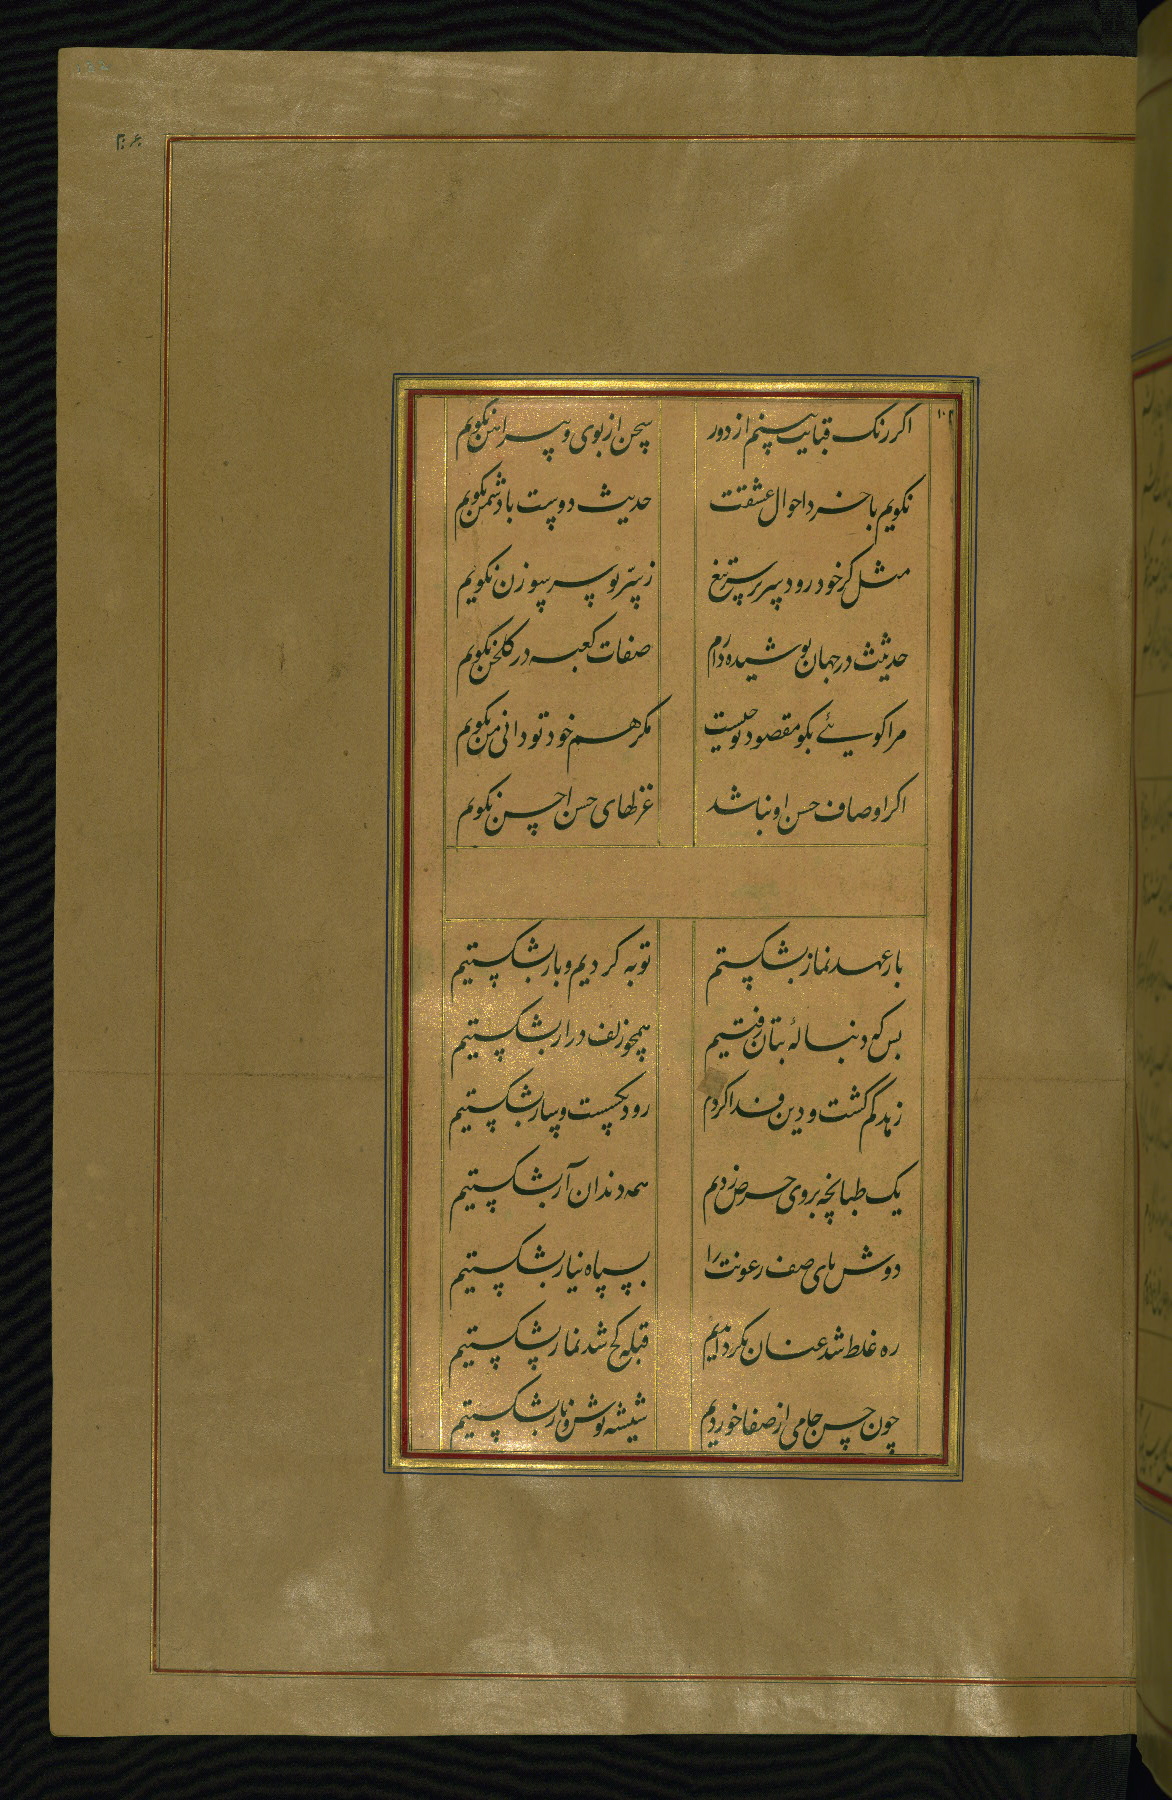 ۲۰۶
۱۰۲
اکر رنک قبایت بینم از دور سخن از بوی و پیراهن نکویم
نکویم با خرد احوال عشقت حدیث دوست با دشمن نکویم
مثل کر خود رود سر بر سر تیغ ز سر تو سر سوزن نکویم
حدیثت در جهان پوشیده دارم صفات کعبه در کلخن نکویم
مرا کویئے بکو مقصود تو چیست مکر هم خود تو دانی من نکویم
اکر اوصاف حسن او نباشد غزلهای حسن احسن نکویم
بار عهد نماز بشکستم توبه کردیم و باز بشکستیم
بس که دنبالهٔ بتان رفتیم همچو زلف دراز بشکستیم
زهد کم کشت و دین فدا کردم
یک طبانچه بروی حرص زدیم همه دندان آز بشکستیم
دوش های صف رعونت را بسپاه نیاز بشکستیم
ره غلط شد عنان بکردانیدیم قبله کج شد نماز بشکستیم
چون حسن جامی از صفا خوردیم شیشه نوش و ناز بشکستیم